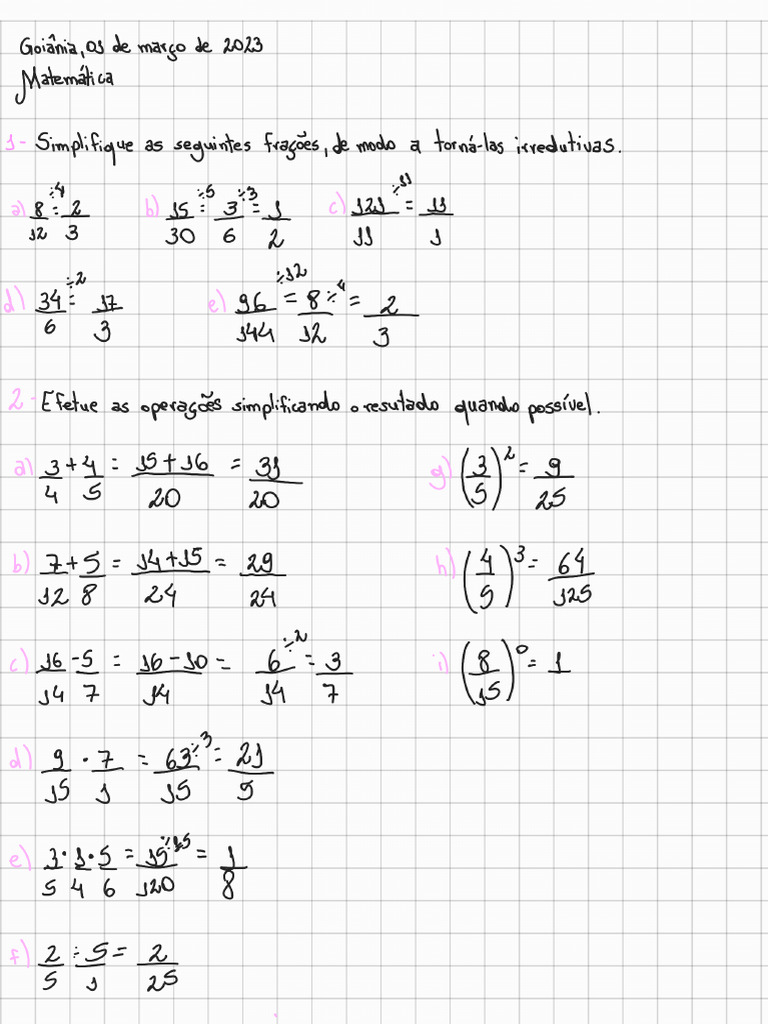 Goiânia, 01 de março de 2023
Matemática
1- Simplifique as seguintes frações, de modo a torná-las irredutivas.
a) 8/12 ÷4 = 2/3 b) 15/30 ÷5 = 3/6 ÷3 = 1/2 c) 121/11 ÷11 = 11/1
d) 34/6 ÷2 = 17/3 e) 96/144 ÷12 = 8/12 ÷4 = 2/3
2- Efetue as operações simplificando o resutado quando possível.
a) 3/4 + 4/5 = 15+16/20 = 31/20 g) (3/5)² = 9/25
b) 7/12 + 5/8 = 14+15/24 = 29/24 h) (4/5)³ = 64/125
c) 16/14 - 5/7 = 16-10/14 = 6/14 ÷2 = 3/7 i) (8/15)⁰ = 1
d) 9/15 · 7/1 = 63/15 ÷3 = 21/5
e) 3/5 · 1/4 · 5/6 = 15/120 ÷15 = 1/8
f) 2/5 ÷ 5/1 = 2/25